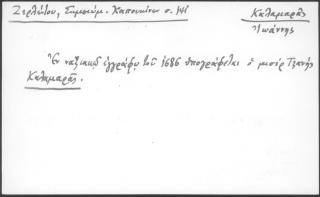 Ζερλέντου, Σημειώμ. Καπουκίνων σ. 141
Καλαμαρᾶς
Ἰωάννης
Ἐν ναξιακῷ ἐγγράφῳ τοῦ 1686 ὑπογράφεται ὁ μισὲρ Τζανῆς
Καλαμαρᾶς.